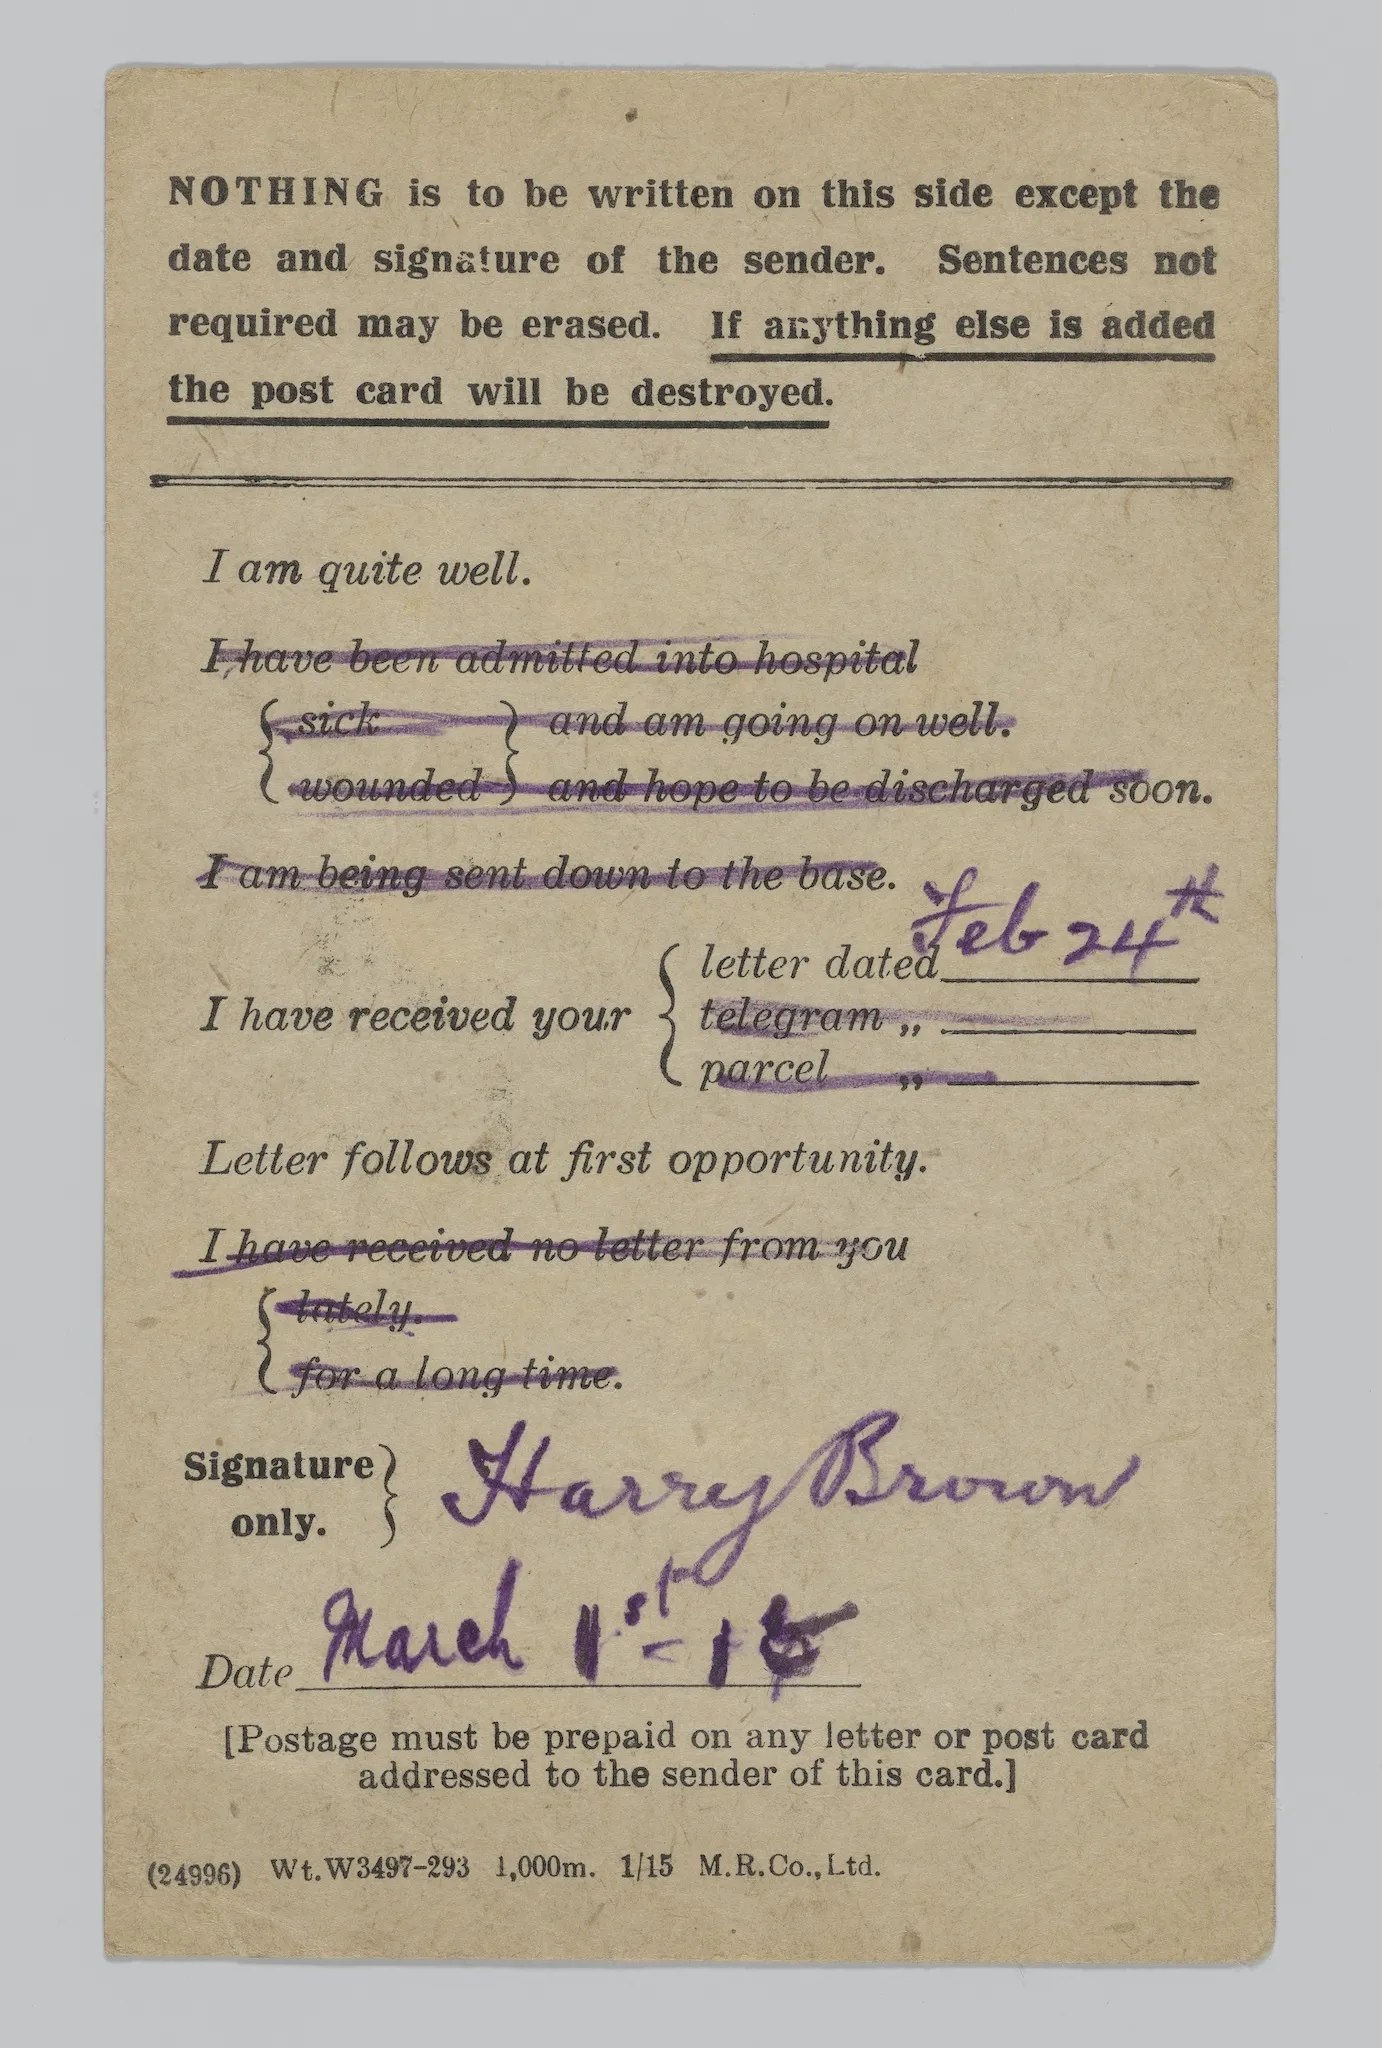 NOTHING is to be written on this side except the
date and signature of the sender. Sentences not
required may be erased. If anything else is added
the post card will be destroyed.
I am quite well.
I have been admitted into hospital
sick and am going on well.
wounded and hope to be discharged soon.
I am being sent down to the base.
letter dated Feb 24th
I have received your
telegram „
parcel „
Letter follows at first opportunity.
I have received no letter from you
lately.
for a long time.
Signature
only.
Harry Brown
Date March 1st - 15
[Postage must be prepaid on any letter or post card
addressed to the sender of this card.]
(24996) Wt.W3497-293 1,000m. 1/15 M.R.Co.,Ltd.